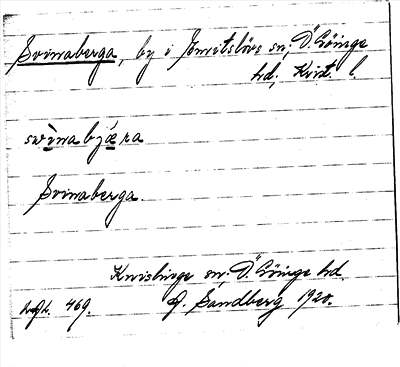 Svinaberga, by i Emitslövs sn; Ö. Göinge
hd, Krist. l.
swìnabjæra
Svinaberga.
Knislinge sn; Ö. Göinge hd.
469. G. Sandberg 1920.